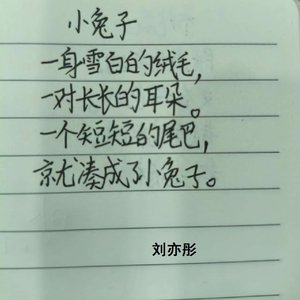 小兔子
一身雪白的绒毛，
一对长长的耳朵。
一个短短的尾巴，
就凑成了小兔子。
刘亦彤